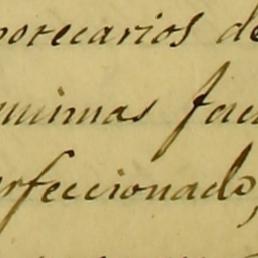 potecarios de
quimas fac
erfeccionado,